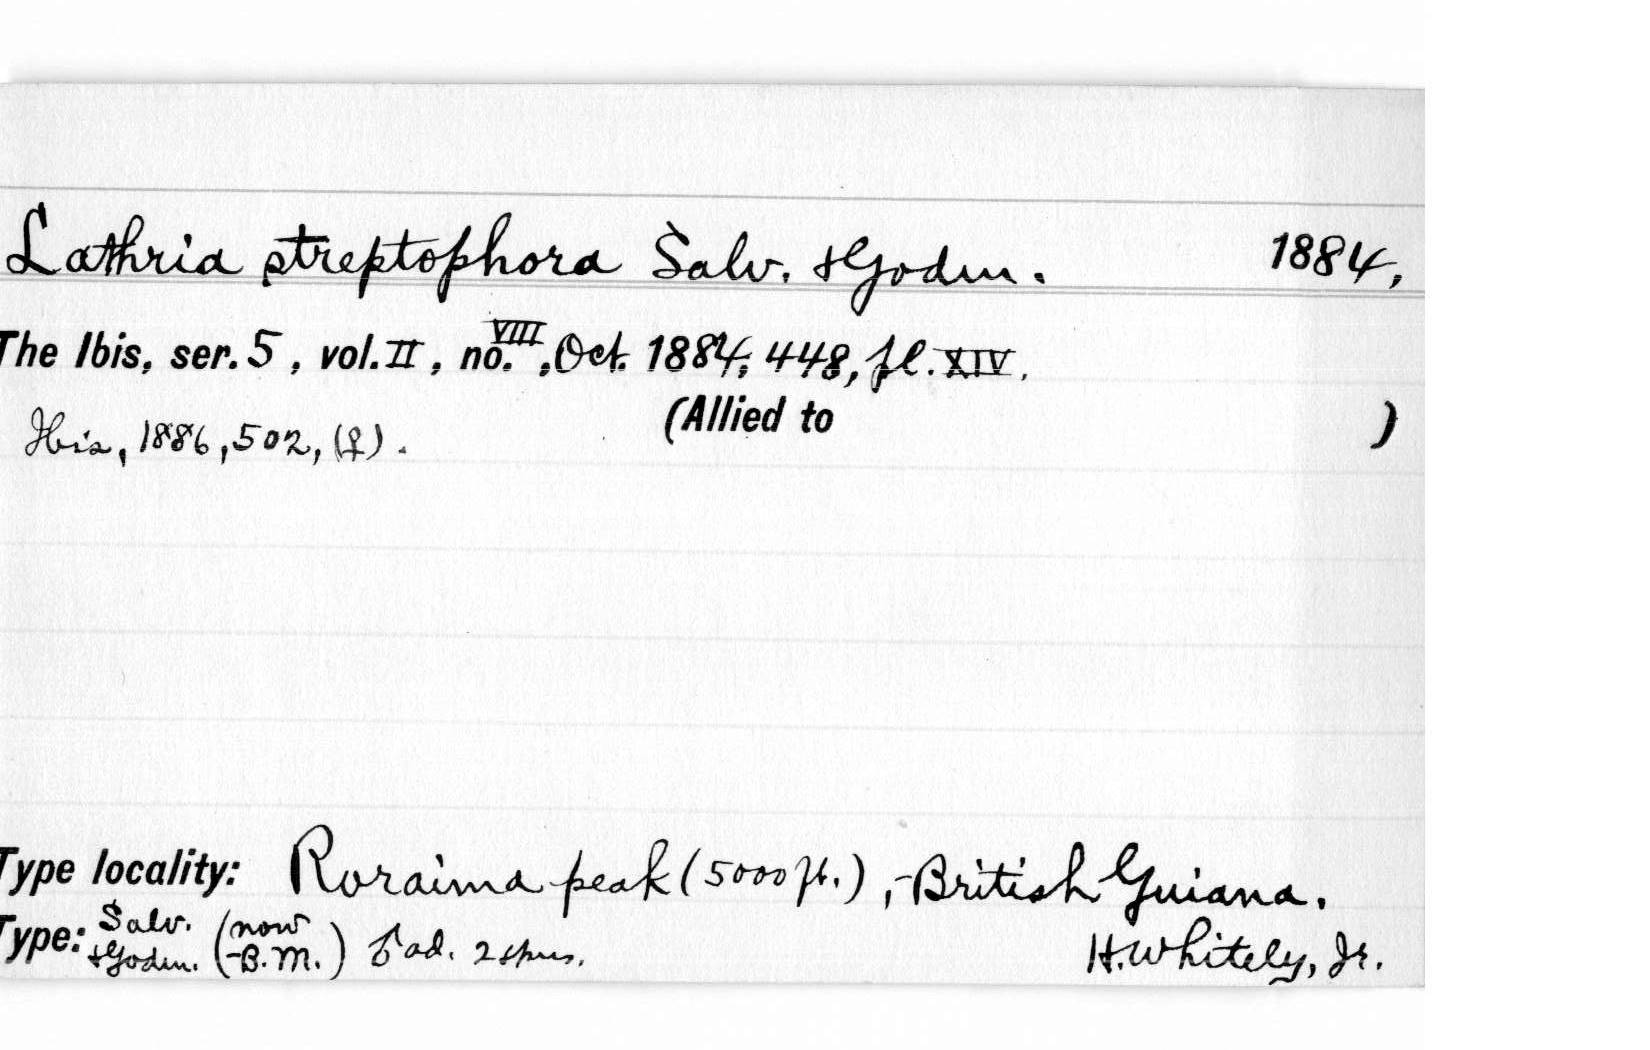 Lathria streptophora Salv. & Godm. 1884,
The Ibis, ser. 5, vol. II, no. VIII, Oct. 1884, 448, pl. XIV.
(Allied to )
Ibis, 1886, 502, (♀).
Type locality: Roraima peak (5000 ft.), British Guiana.
Type: Salv. & Godm. (now B.M.) ♂ ad. 2 spms. H. Whitely, Jr.